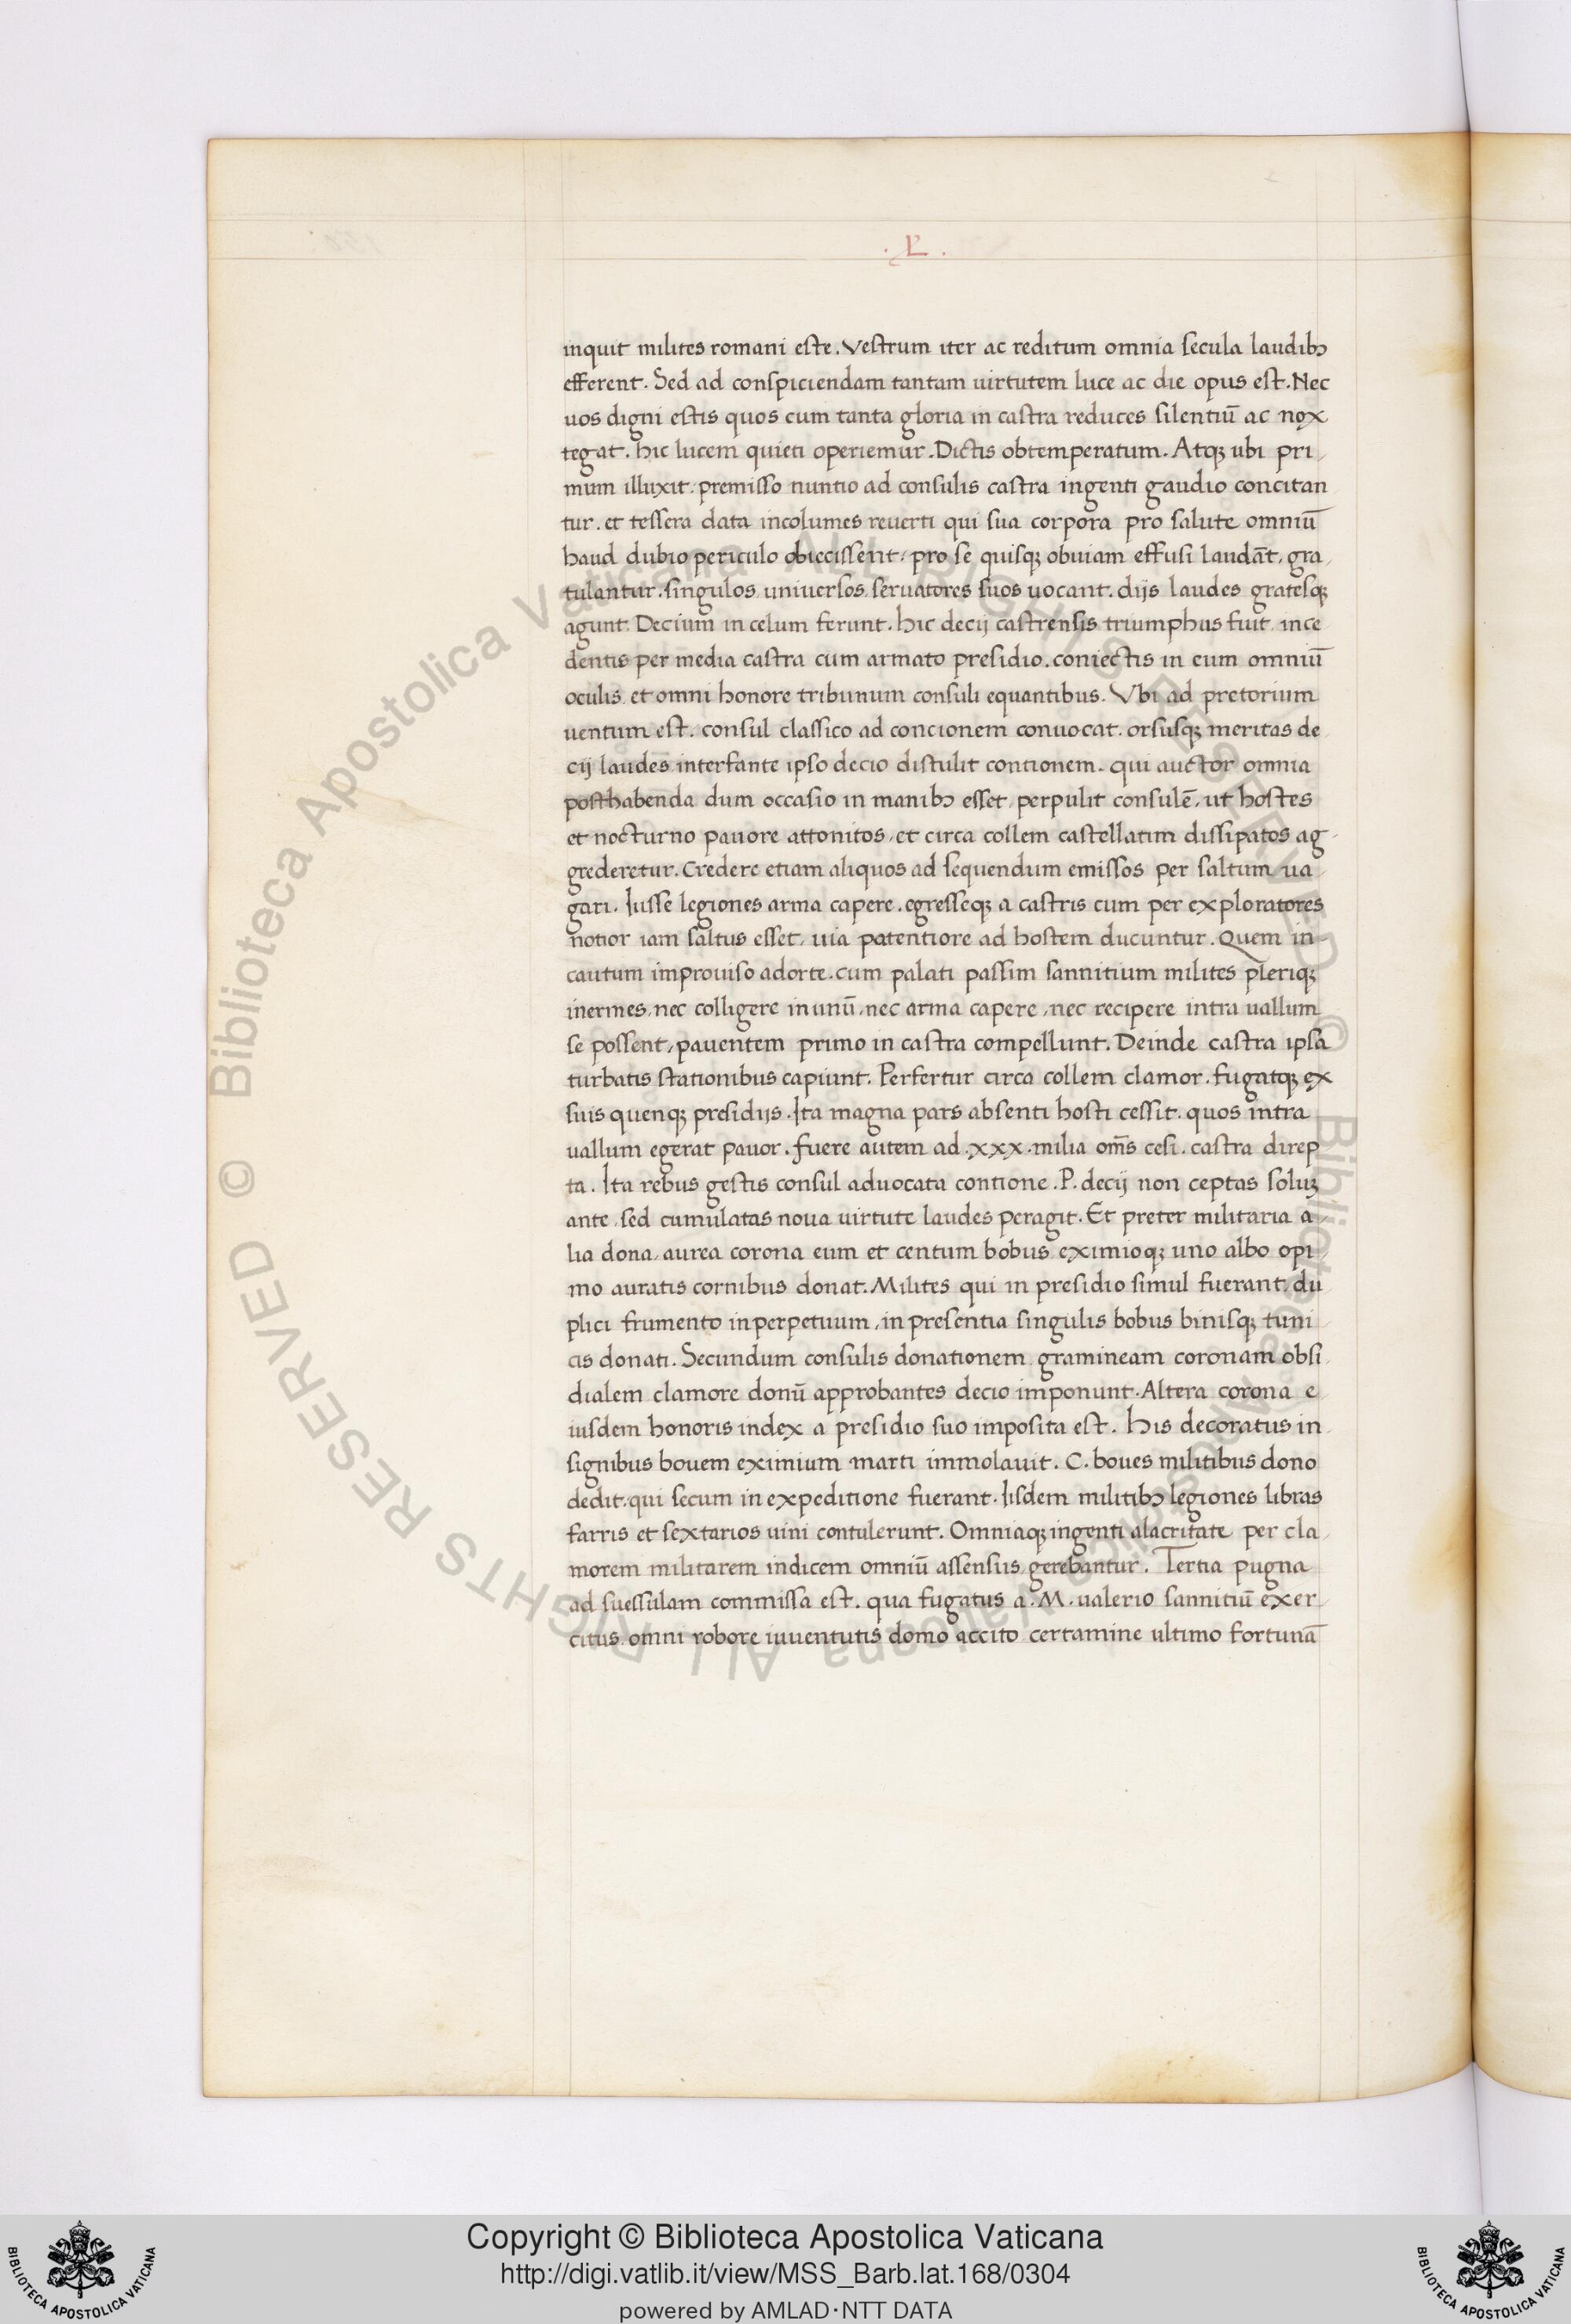 . L .
inquit milites romani este. Vestrum iter ac reditum omnia secula laudibꝫ
efferent. Sed ad conspiciendam tantam uirtutem luce ac die opus est. Nec
uos digni estis quos cum tanta gloria in castra reduces silentiū ac nox
tegat. hic lucem quieti operiemur. Dictis obtemperatum. Atqꝫ ubi pri
mum illuxit. premisso nuntio ad consulis castra ingenti gaudio concitan
tur. et tessera data incolumes reuerti qui sua corpora pro salute omniū
haud dubio periculo obiecissent, pro se quisqꝫ obuiam effusi laudāt, gra
tulantur. singulos, uniuersos, seruatores suos uocant. dijs laudes gratesqꝫ
agunt. Decium in celum ferunt. hic decij castrensis triumphus fuit ince
dentis per media castra cum armato presidio. coniectis in eum omniū
oculis. et omni honore tribunum consuli equantibus. Vbi ad pretorium
uentum est. consul classico ad concionem conuocat. orsusqꝫ meritas de
cij laudes interfante ipso decio distulit contionem. qui auctor omnia
posthabenda dum occasio in manibꝫ esset, perpulit consulē, ut hostes
et nocturno pauore attonitos, et circa collem castellatim dissipatos ag
grederetur. Credere etiam aliquos ad sequendum emissos per saltum ua
gari. Iusse legiones arma capere. egresseqꝫ a castris cum per exploratores
notior iam saltus esset, uia patentiore ad hostem ducuntur. Quem in-
cautum improuiso adorte. cum palati passim sannitium milites pleriqꝫ
inermes, nec colligere in unū, nec arma capere, nec recipere intra uallum
se possent, pauentem primo in castra compellunt. Deinde castra ipsa
turbatis stationibus capiunt. Perfertur circa collem clamor. fugatqꝫ ex
suis quenqꝫ presidijs. Ita magna pars absenti hosti cessit. quos intra
uallum egerat pauor. fuere autem ad .xxx. milia om̄s cesi. castra direp
ta. Ita rebus gestis consul aduocata contione. P. decij non ceptas soluꝫ
ante, sed cumulatas noua uirtute laudes peragit. Et preter militaria a
lia dona, aurea corona eum et centum bobus eximioqꝫ uno albo opi
mo auratis cornibus donat. Milites qui in presidio simul fuerant, du
plici frumento in perpetuum, in presentia singulis bobus binisqꝫ tuni
cis donati. Secundum consulis donationem gramineam coronam obsi
dialem clamore donū approbantes decio imponunt. Altera corona e
iusdem honoris index a presidio suo imposita est. His decoratus in
signibus bouem eximium marti immolauit. C. boues militibus dono
dedit. qui secum in expeditione fuerant. Iisdem militibꝫ legiones libras
farris et sextarios uini contulerunt. Omniaqꝫ ingenti alacritate per cla
morem militarem indicem omniū assensus gerebantur. Tertia pugna
ad suessulam commissa est. qua fugatus a. M. ualerio sannitiū exer
citus omni robore iuuentutis domo accito certamine ultimo fortunā
© Biblioteca Apostolica Vaticana ALL RIGHTS RESERVED
© Biblioteca Apostolica Vaticana ALL RIGHTS RESERVED
BIBLIOTECA APOSTOLICA VATICANA
Copyright © Biblioteca Apostolica Vaticana
http://digi.vatlib.it/view/MSS_Barb.lat.168/0304
powered by AMLAD·NTT DATA
BIBLIOTECA APOSTOLICA VATICANA